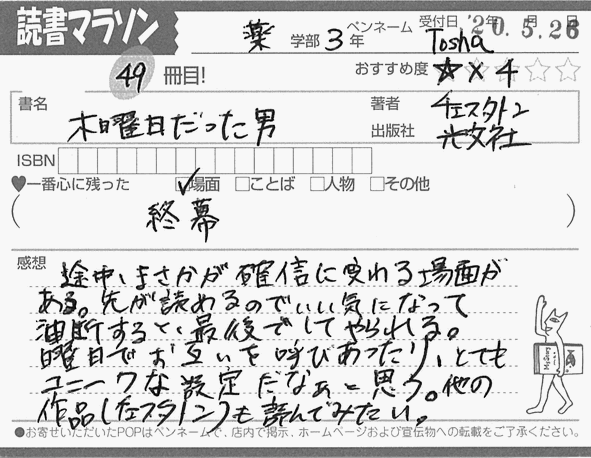 読書マラソン
薬 学部 3 年 ペンネーム Tosha 受付日 '20.5.26 年 月 日
49 冊目! おすすめ度 ☆×4
書名 木曜日だった男
著者 チェスタトン
出版社 光文社
ISBN
♥一番心に残った ✓場面 □ことば □人物 □その他
( 終幕 )
感想
途中、まさかが確信に変わる場面が
ある。先が読めるのでいい気になって
油断すると、最後でしてやられる。
曜日でお互いを呼びあったり、とても
ユニークな設定だなぁと思う。他の
作品(チェスタトン)も読んでみたい。
●お寄せいただいたPOPはペンネームで、店内で掲示、ホームページおよび宣伝物への転載をご了承ください。